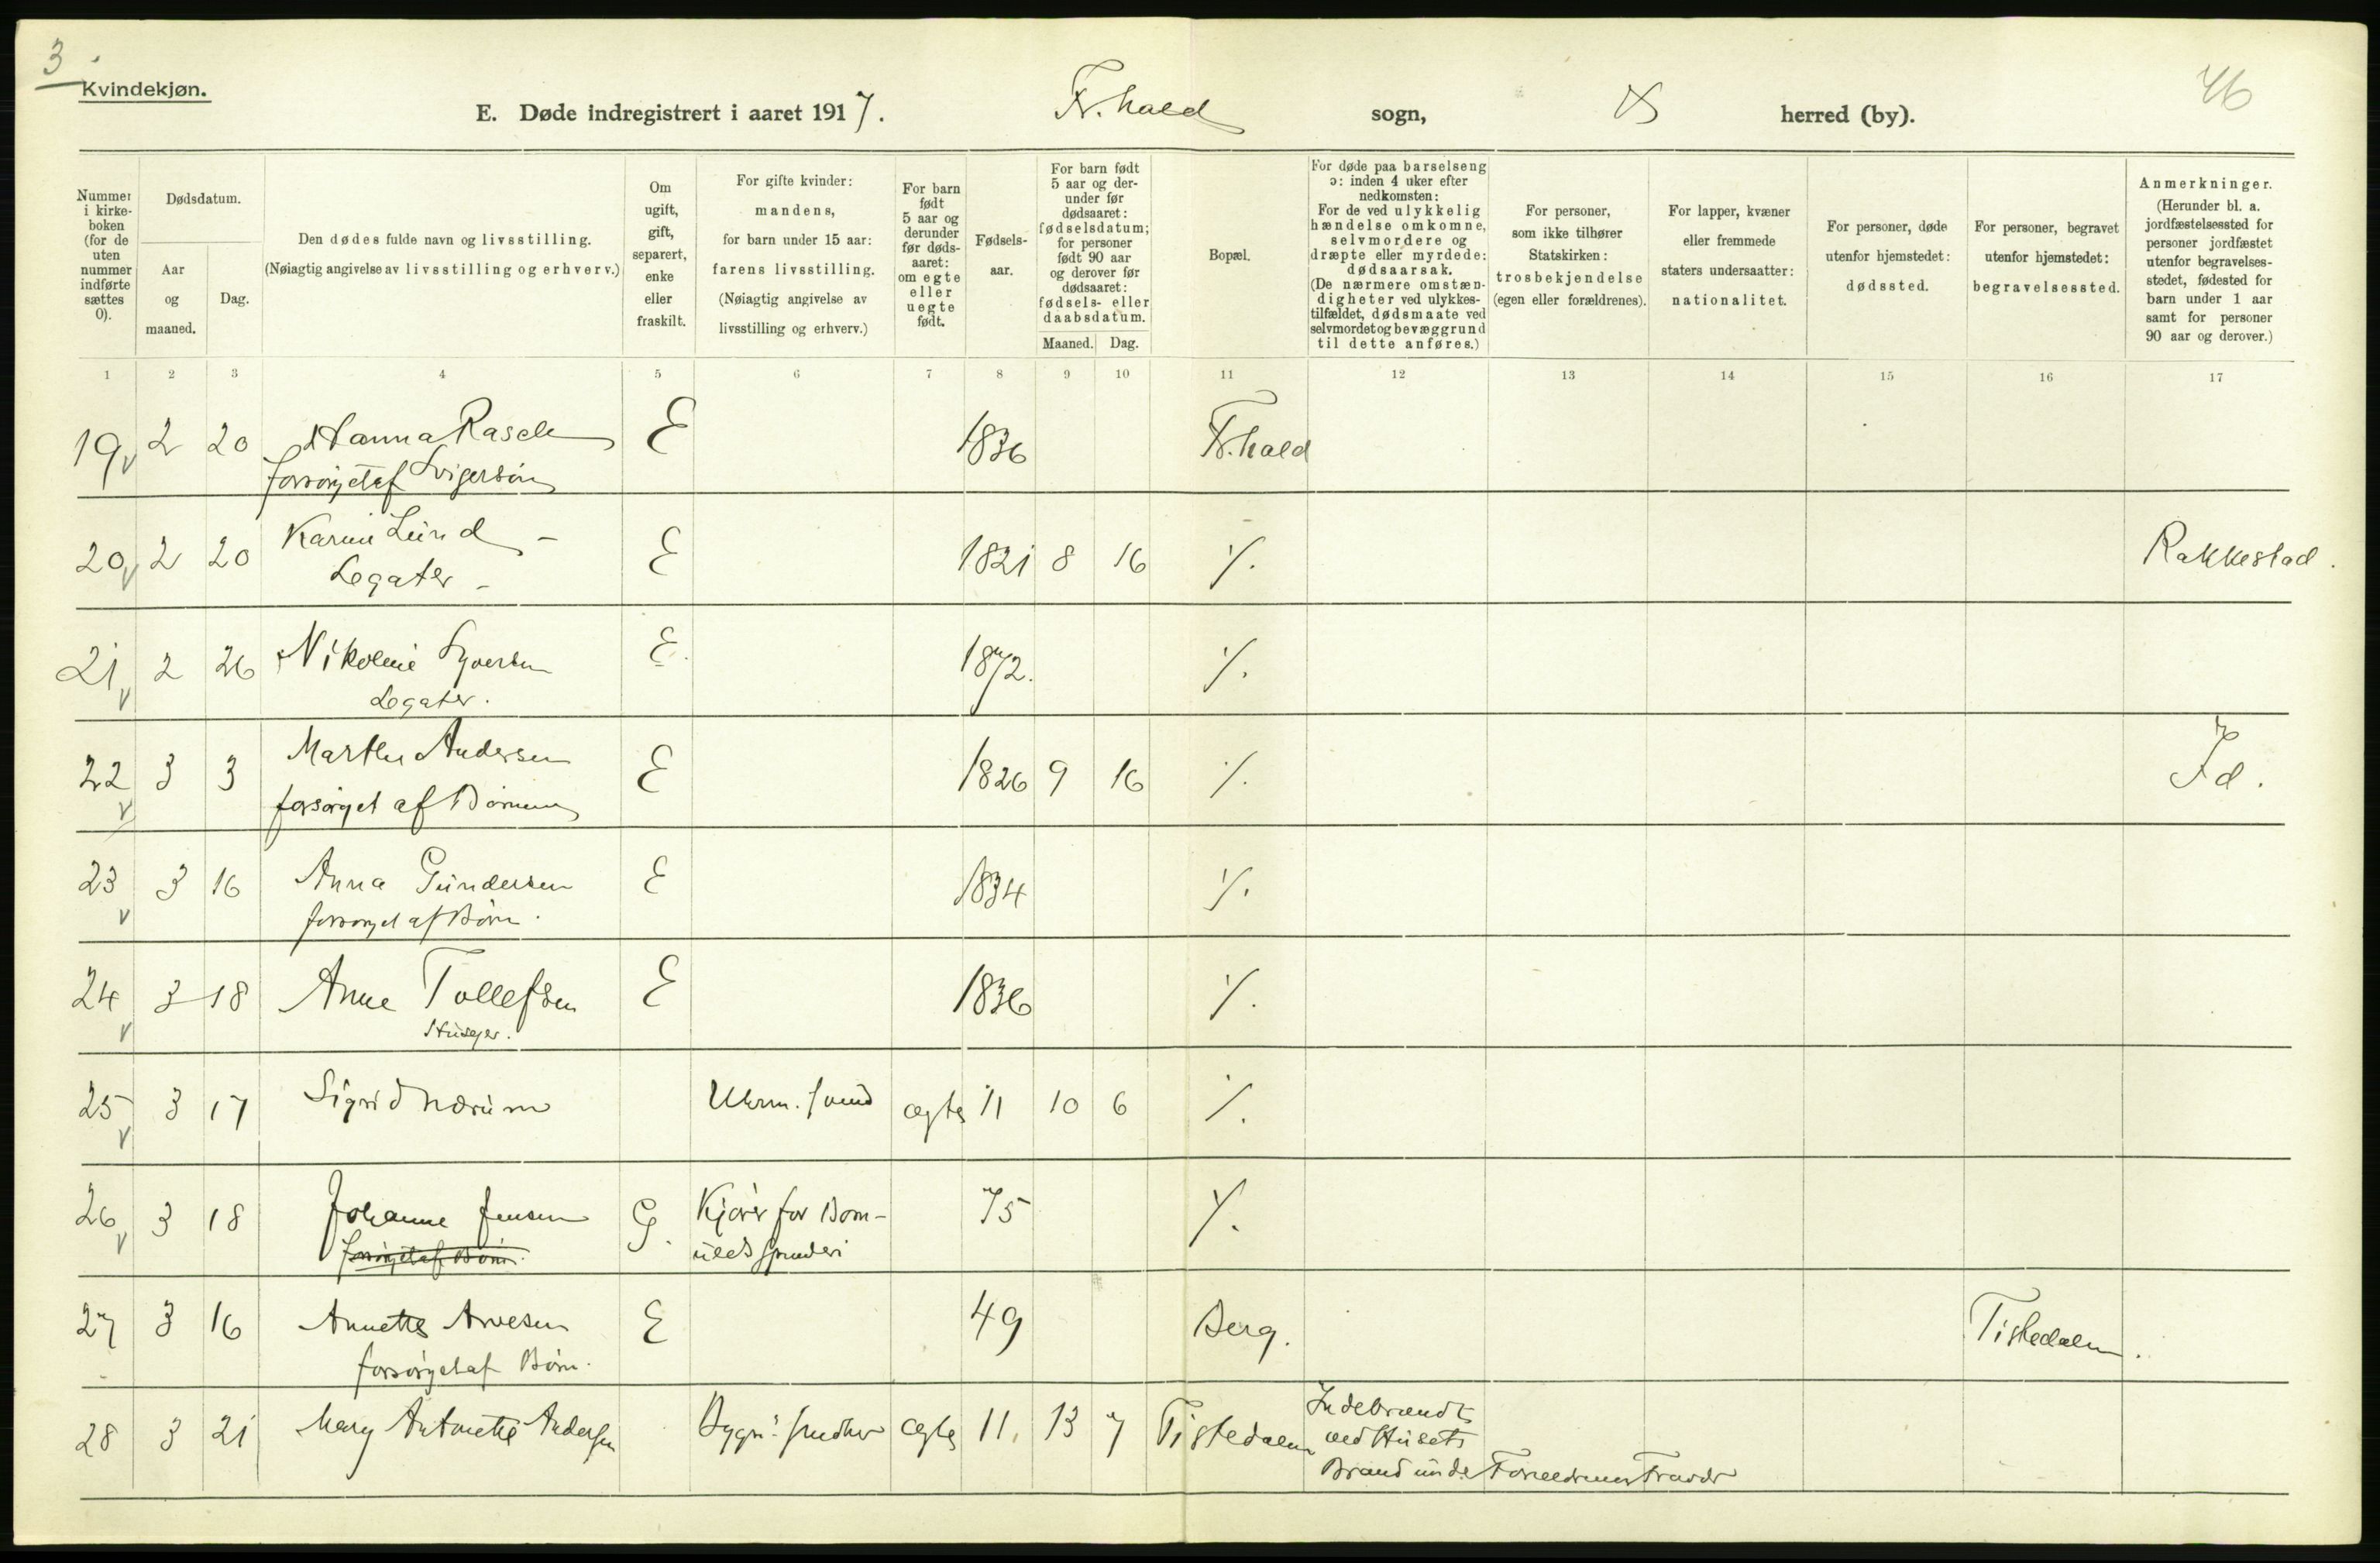 3
Kvindekjøn.
E. Døde indregistrert i aaret 1917. Fr.hald sogn, herred (by).
46
Nummer i kirkeboken (for de uten nummer indførte sættes 0).
Dødsdatum.
Aar og maaned.
Dag.
Den dødes fulde navn og livsstilling.
(Nøiagtig angivelse av livsstilling og erhverv.)
Om ugift, gift, separert, enke eller fraskilt.
For gifte kvinder:
mandens,
for barn under 15 aar:
farens livsstilling.
(Nøiagtig angivelse av
livsstilling og erhverv.)
For barn født 5 aar og derunder før dødsaaret: om egte eller uegte født.
Fødselsaar.
For barn født 5 aar og derunder før dødsaaret: fødselsdatum; for personer født 90 aar og derover før dødsaaret: fødsels- eller daabsdatum.
Maaned. Dag.
Bopæl.
For døde paa barselseng
ɔ: inden 4 uker efter
nedkomsten:
For de ved ulykkelig
hændelse omkomne,
selvmordere og
dræpte eller myrdede:
dødsaarsak.
(De nærmere omstæn-
digheter ved ulykkes-
tilfældet, dødsmaate ved
selvmordet og bevæggrund
til dette anføres.)
For personer,
som ikke tilhører
Statskirken:
trosbekjendelse
(egen eller forældrenes).
For lapper, kvæner
eller fremmede
staters undersaatter:
nationalitet.
For personer, døde
utenfor hjemstedet:
dødssted.
For personer, begravet
utenfor hjemstedet:
begravelsessted.
Anmerkninger.
(Herunder bl. a.
jordfæstelsessted for
personer jordfæstet
utenfor begravelses-
stedet, fødested for
barn under 1 aar
samt for personer
90 aar og derover.)
1 2 3 4 5 6 7 8 9 10 11 12 13 14 15 16 17
19 2 20 Hanna Rasch E 1836 Fr.hald
forsørjet af Svigersøn
20 2 20 Karine Lund - E 1821 8 16 ./. Rakkestad.
Legater -
21 2 26 Nikoline Syversen E. 1872. ./.
Legater.
22 3 3 Marthe Andersen E 1826 9 16 ./. Id.
forsørget af Børnene
23 3 16 Anna Gundersen E 1834 ./.
forsørget af Børn.
24 3 18 Anne Tollefsen E 1836 ./.
Husejer.
25 3 17 Sigrid Nærum Uhrm. svend ægte 11 10 6 ./.
26 3 18 Johanne Jensen G. Kjører for Bom- 75 ./.
forsørjet af Børn. uldsspinderi
27 3 16 Annette Arvesen E 49 Berg. Tistedalen.
forsørjet af Børn.
28 3 21 Mary Antonette Andersen Bygn: snedker ægte 11. 13 7 Tistedalen Indebrændt
ved Husets
Brand under Forældrenes Fravær